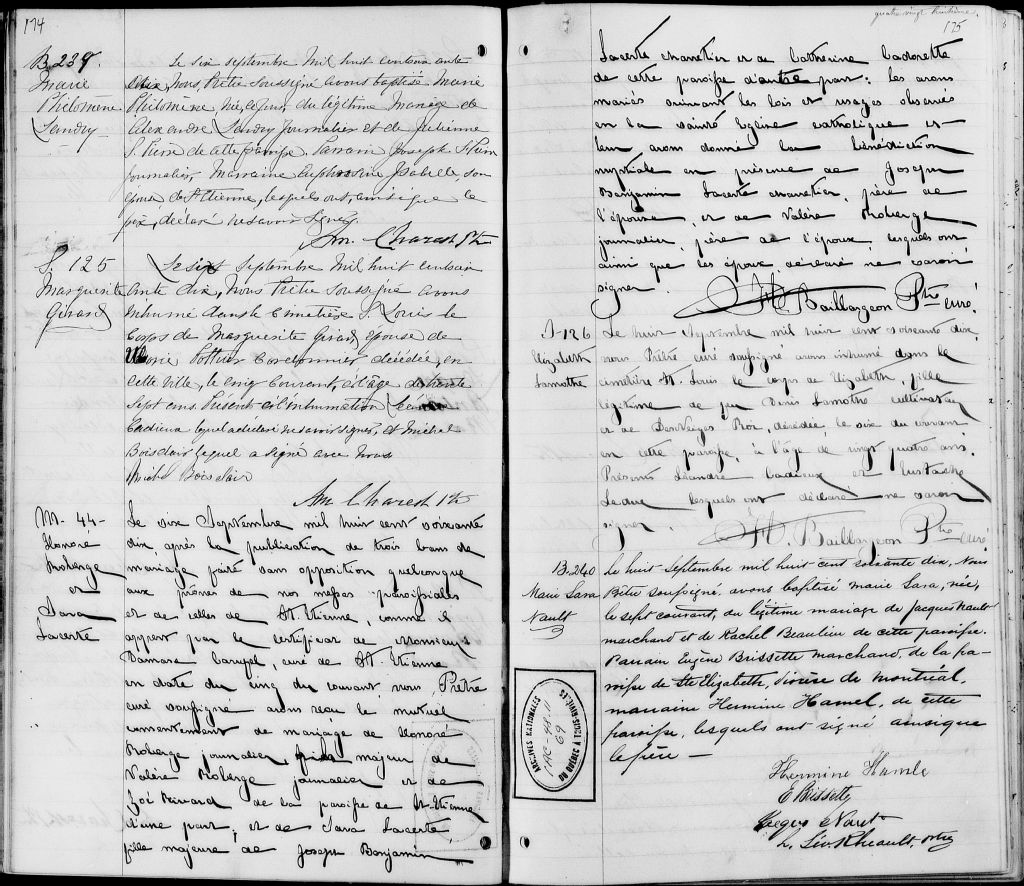 174
B. 239.
Marie
Philomène
Landry
Le six septembre Mil huit cent soixante
dix, Nous Prêtre soussigné avons baptisé Marie
Philomène née ce jour du légitime Mariage de
Alexandre Landry Journalier et de Julienne
St. Pierre de cette paroisse. Parrain Joseph St. Pierre
journalier, Marraine Euphrosine Isabelle, son
épouse de St Etienne, lesquels ont, ainsi que le
père, déclaré ne savoir signer.
Am. Charest Ptre
S. 125
Marguerite
Girard
Le sept Septembre Mil huit cent soix
ante dix, Nous Prêtre soussigné avons
inhumé dans le Cimetière St. Louis le
Corps de Marguerite Girard épouse de
Pottier Cordonnier décédée en
cette Ville, le cinq Courant à l'âge de trente
sept ans. Présent à l'inhumation
Cadieux lequel a déclaré ne savoir signer, et Michel
Boisclair lequel a signé avec nous
Michel Boisclair
Am Charest Ptre
M- 44-
Honoré
Roberge
et
Sara
Lacerte
Le six Septembre mil huit cent soixante
dix, après la publication de trois bans de
mariage faite sans opposition quelconque
aux prônes de nos messes paroissiales
et de celles de St. Etienne, comme il
appert par le certificat de Monsieur
Damase Carufel, curé de St Etienne
en date du cinq du courant nous, Prêtre
curé soussigné avons reçu le mutuel
consentement de mariage de Honoré
Roberge journalier, fils majeur de
Valère Roberge journalier et de
Zoé Rivard de la paroisse de St-Etienne
d'une part; et de Sara Lacerte,
fille majeure de Joseph Benjamin
quatre vingt huitième.
175
Lacerte charretier et de Catherine Cadorette
de cette paroisse d'autre part; les avons
mariés suivant les lois et usages observés
en la sainte Eglise catholique et
leur avons donné la bénédiction
nuptiale en présence de Joseph
Benjamin Lacerte charretier, père de
l'épouse, et de Valère Roberge
journalier, père de l'époux, lesquels ont
ainsi que les époux déclaré ne savoir
signer.
Baillargeon Ptre curé.
S-126
Elizabeth
Lamothe
Le huit Septembre mil huit cent soixante dix
nous Prêtre curé soussigné avons inhumé dans le
cimetière St. Louis le corps de Elizabeth, fille
légitime de feu Denis Lamothe cultivateur
et de Desneiges Roy, décédée le six du courant
en cette paroisse, à l'âge de vingt quatre ans.
Présents Léandre Cadieux et Eustache
Leduc lesquels ont déclaré ne savoir
signer.
Baillargeon Ptre curé
B. 240
Marie Sara
Nault
Le huit Septembre mil huit cent soixante dix, Nous
Prêtre soussigné, avons baptisé Marie Sara, née
le sept courant, du légitime mariage de Jacques Nault
marchand et de Rachel Beaulieu de cette paroisse.
Parrain Eugène Brissette marchand, de la pa-
roisse de Ste Elizabeth, diocèse de Montréal,
marraine Hermine Hamel, de cette
paroisse, lesquels ont signé ainsi que
le père —
Hermine Hamel
E Brissette
Nault
L. Sév. Rheault, ptre
ARCHIVES NATIONALES
DU QUÉBEC À TROIS-RIVIÈRES